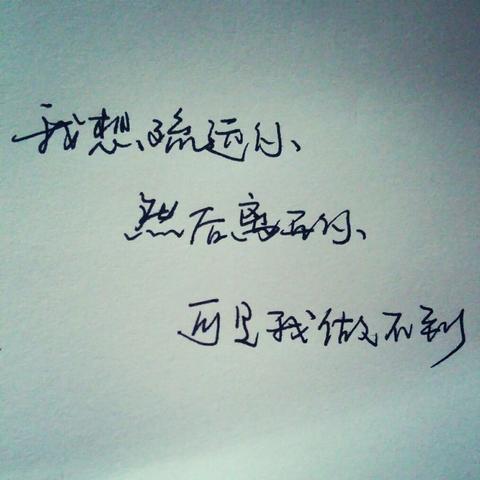 我想、疏远你、
然后离开你、
可是我做不到